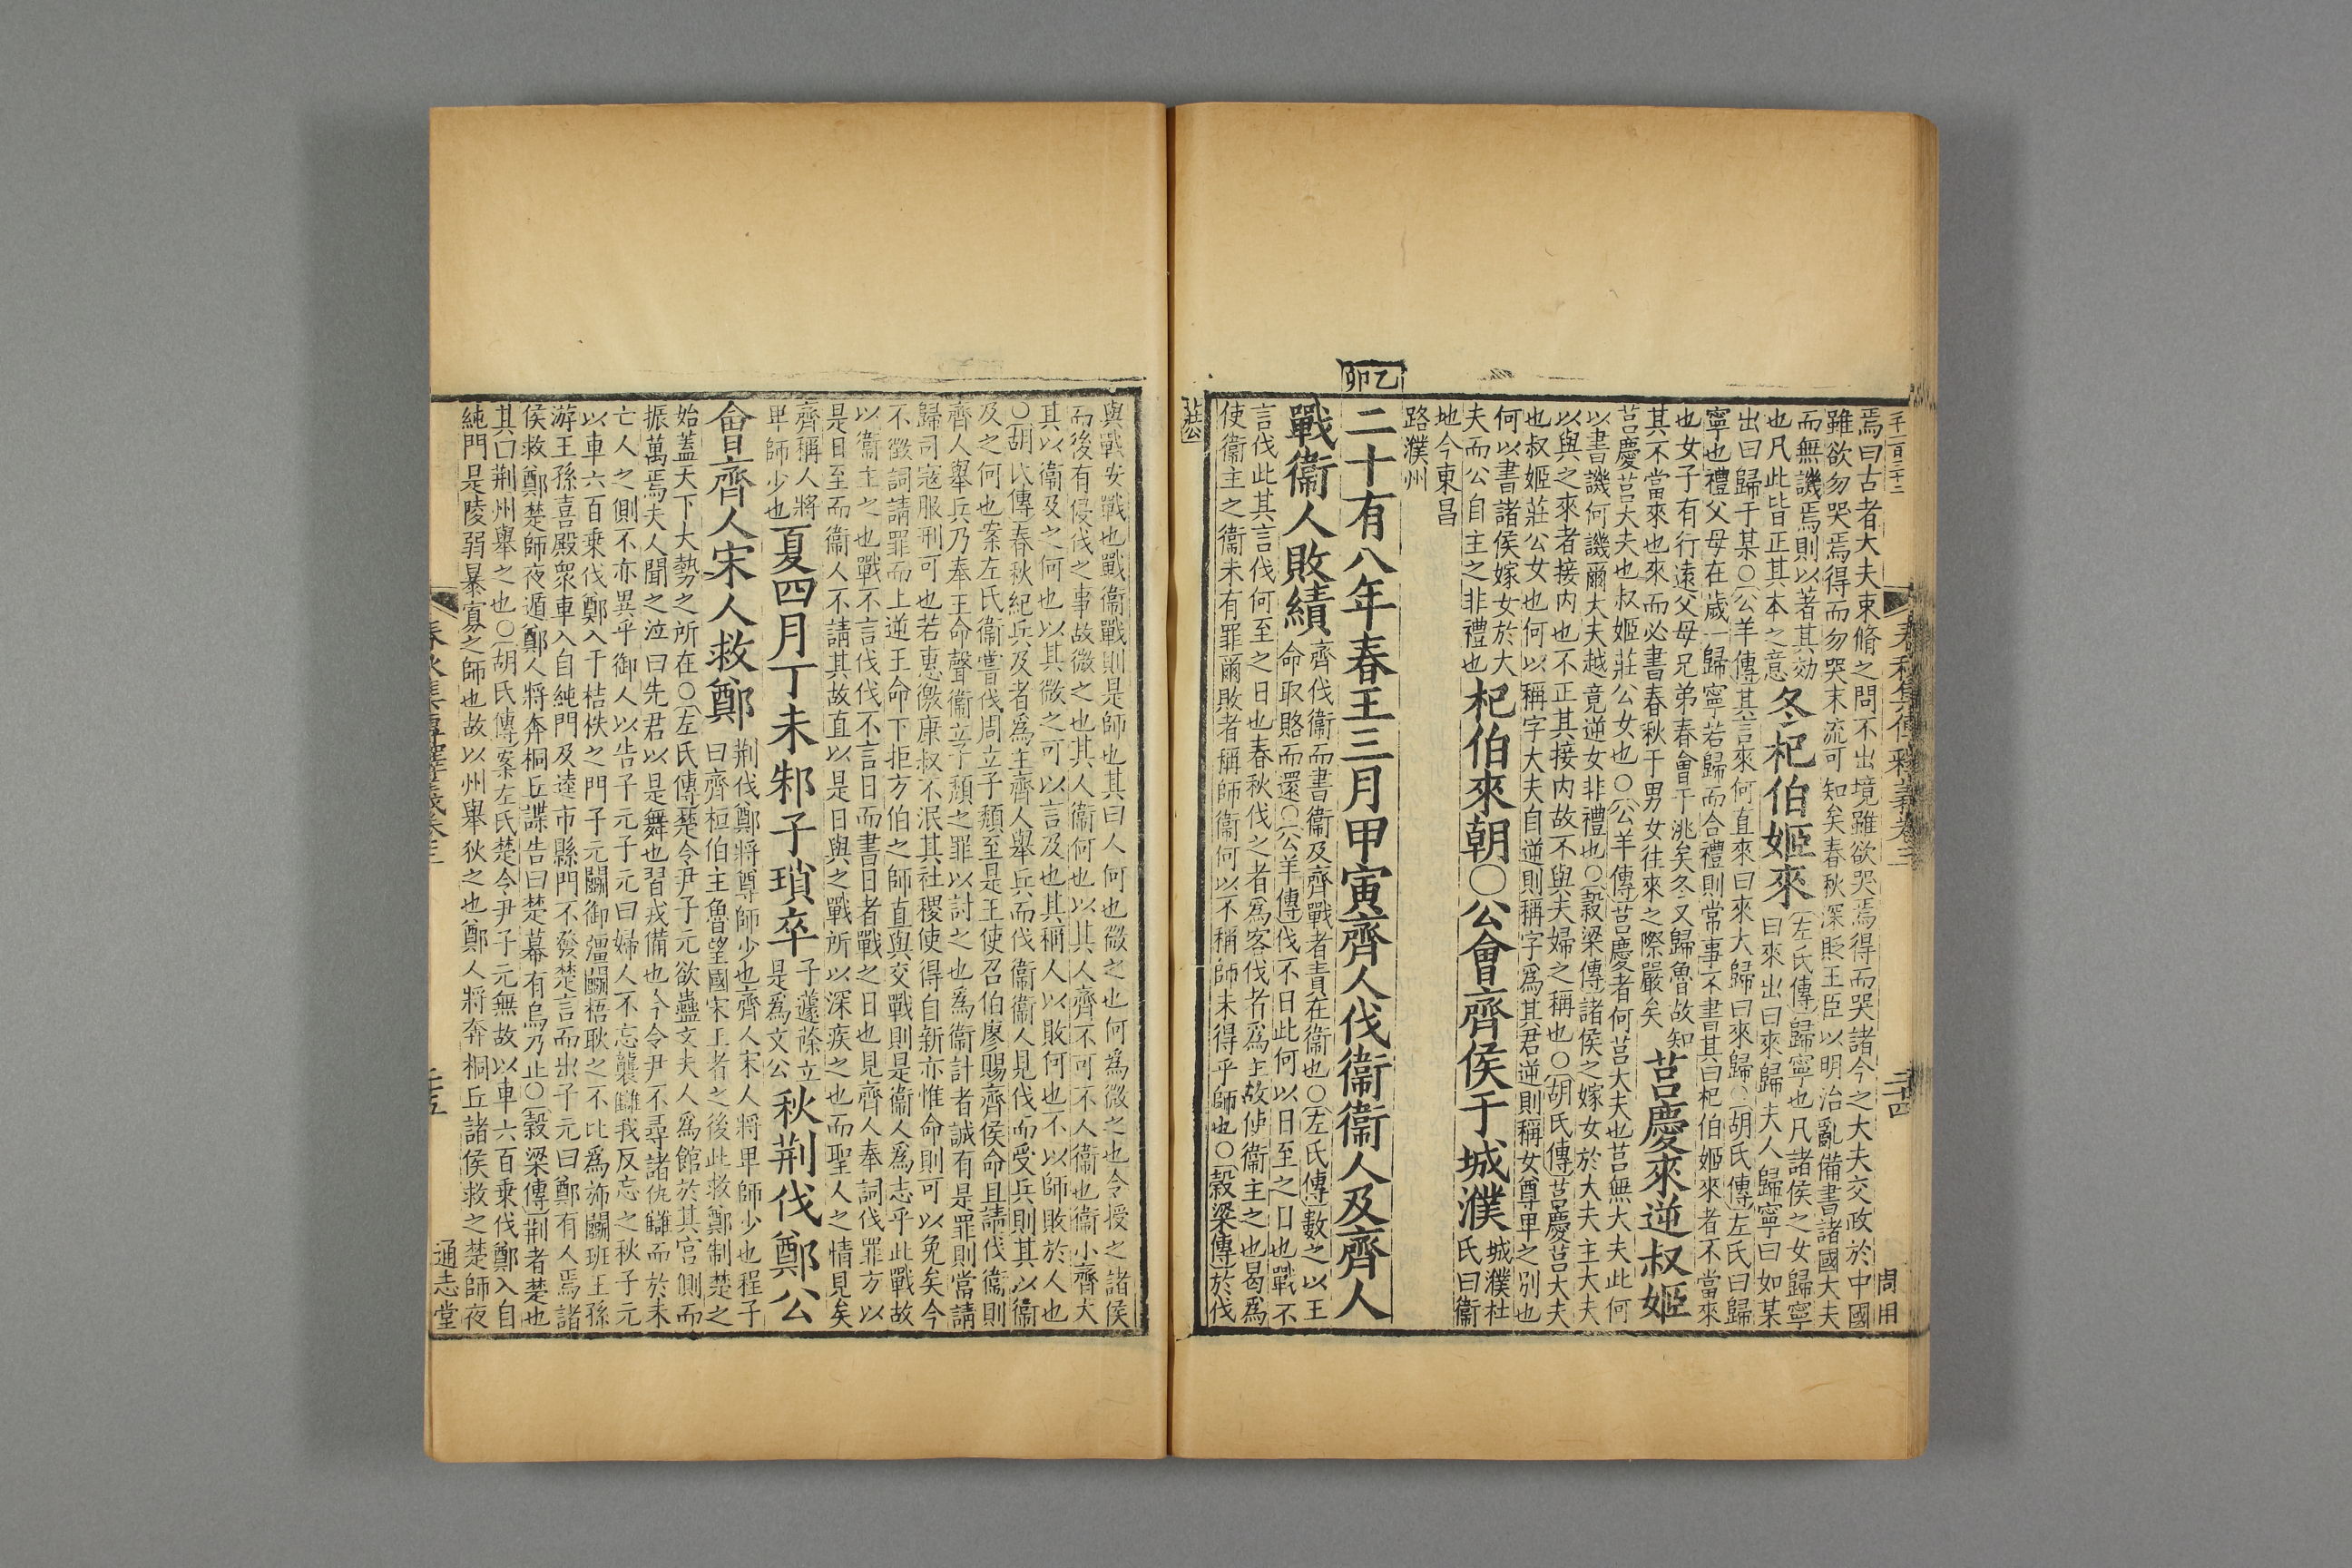 千一百三十二
春秋集傳釋義卷三
二十四
周用
焉曰古者大夫束脩之問不出境雖欲哭焉得而哭諸今之大夫交政於中國
雖欲勿哭焉得而勿哭末流可知矣春秋深貶王臣以明治亂備書諸國大夫
而無譏焉則以著其効
也凡此皆正其本之意
冬杞伯姬來
左氏傳歸寧也凡諸侯之女歸寧
曰來出曰來歸夫人歸寧曰如某
出曰歸于某○公羊傳其言來何直來曰來大歸曰來歸○胡氏傳左氏曰歸
寧也禮父母在歲一歸寧若歸而合禮則常事不書其曰杞伯姬來者不當來
也女子有行遠父母兄弟春會于洮矣冬又歸魯故知
其不當來也來而必書春秋于男女往來之際嚴矣
莒慶來逆叔姬
莒慶莒大夫也叔姬莊公女也○公羊傳莒慶者何莒大夫也莒無大夫此何
以書譏何譏爾大夫越竟逆女非禮也○榖梁傳諸侯之嫁女於大夫主大夫
以與之來者接內也不正其接內故不與夫婦之稱也○胡氏傳莒慶莒大夫
也叔姬莊公女也何以稱字大夫自逆則稱字爲其君逆則稱女尊卑之別也
何以書諸侯嫁女於大
夫而公自主之非禮也
杞伯來朝○公會齊侯于城濮
城濮杜
氏曰衞
地今東昌
路濮州
乙卯
二十有八年春王三月甲寅齊人伐衞衞人及齊人
戰衞人敗績
齊伐衞而書衞及齊戰者責在衞也○左氏傳數之以王
命取賂而還○公羊傳伐不日此何以日至之日也戰不
言伐此其言伐何至之日也春秋伐之者爲客伐者爲主故使衞主之也曷爲
使衞主之衞未有罪爾敗者稱師衞何以不稱師未得乎師也○榖梁傳於伐
莊公
與戰安戰也戰衞戰則是師也其曰人何也微之也何爲微之也今授之諸侯
而後有侵伐之事故微之也其人衞何也以其人齊不可不人衞也衞小齊大
其以衞及之何也以其微之可以言及也其稱人以敗何也不以師敗於人也
○胡氏傳春秋紀兵及者爲主齊人舉兵而伐衞衞人見伐而受兵則其以衞
及之何也案左氏衞嘗伐周立子頹至是王使召伯廖賜齊侯命且請伐衞則
齊人舉兵乃奉王命聲衞立子頹之罪以討之也爲衞計者誠有是罪則當請
歸司寇服刑可也若惠徼康叔不泯其社稷使得自新亦惟命則可以免矣今
不徵詞請罪而上逆王命下拒方伯之師直與交戰則是衞人爲志乎此戰故
以衞主之也戰不言伐伐不言日而書日者戰之日也見齊人奉詞伐罪方以
是日至而衞人不請其故直以是日與之戰所以深疾之也而聖人之情見矣
齊稱人將
卑師少也
夏四月丁未邾子瑣卒
子蘧蒢立
是爲文公
秋荆伐鄭公
會齊人宋人救鄭
荆伐鄭將尊師少也齊人宋人將卑師少也程子
曰齊桓伯主魯望國宋王者之後此救鄭制楚之
始蓋天下大勢之所在○左氏傳楚令尹子元欲蠱文夫人爲館於其宮側而
振萬焉夫人聞之泣曰先君以是舞也習戎備也今令尹不尋諸仇讎而於未
亡人之側不亦異乎御人以告子元子元曰婦人不忘襲讎我反忘之秋子元
以車六百乗伐鄭入于桔柣之門子元鬬御彊鬬梧耿之不比爲斾鬬班王孫
游王孫喜殿衆車入自純門及逵市縣門不發楚言而出子元曰鄭有人焉諸
侯救鄭楚師夜遁鄭人將奔桐丘諜告曰楚幕有烏乃止○榖梁傳荆者楚也
其曰荆州舉之也○胡氏傳案左氏楚令尹子元無故以車六百乗伐鄭入自
純門是陵弱暴寡之師也故以州舉狄之也鄭人將奔桐丘諸侯救之楚師夜
春秋集傳釋義卷三
二十五
通志堂